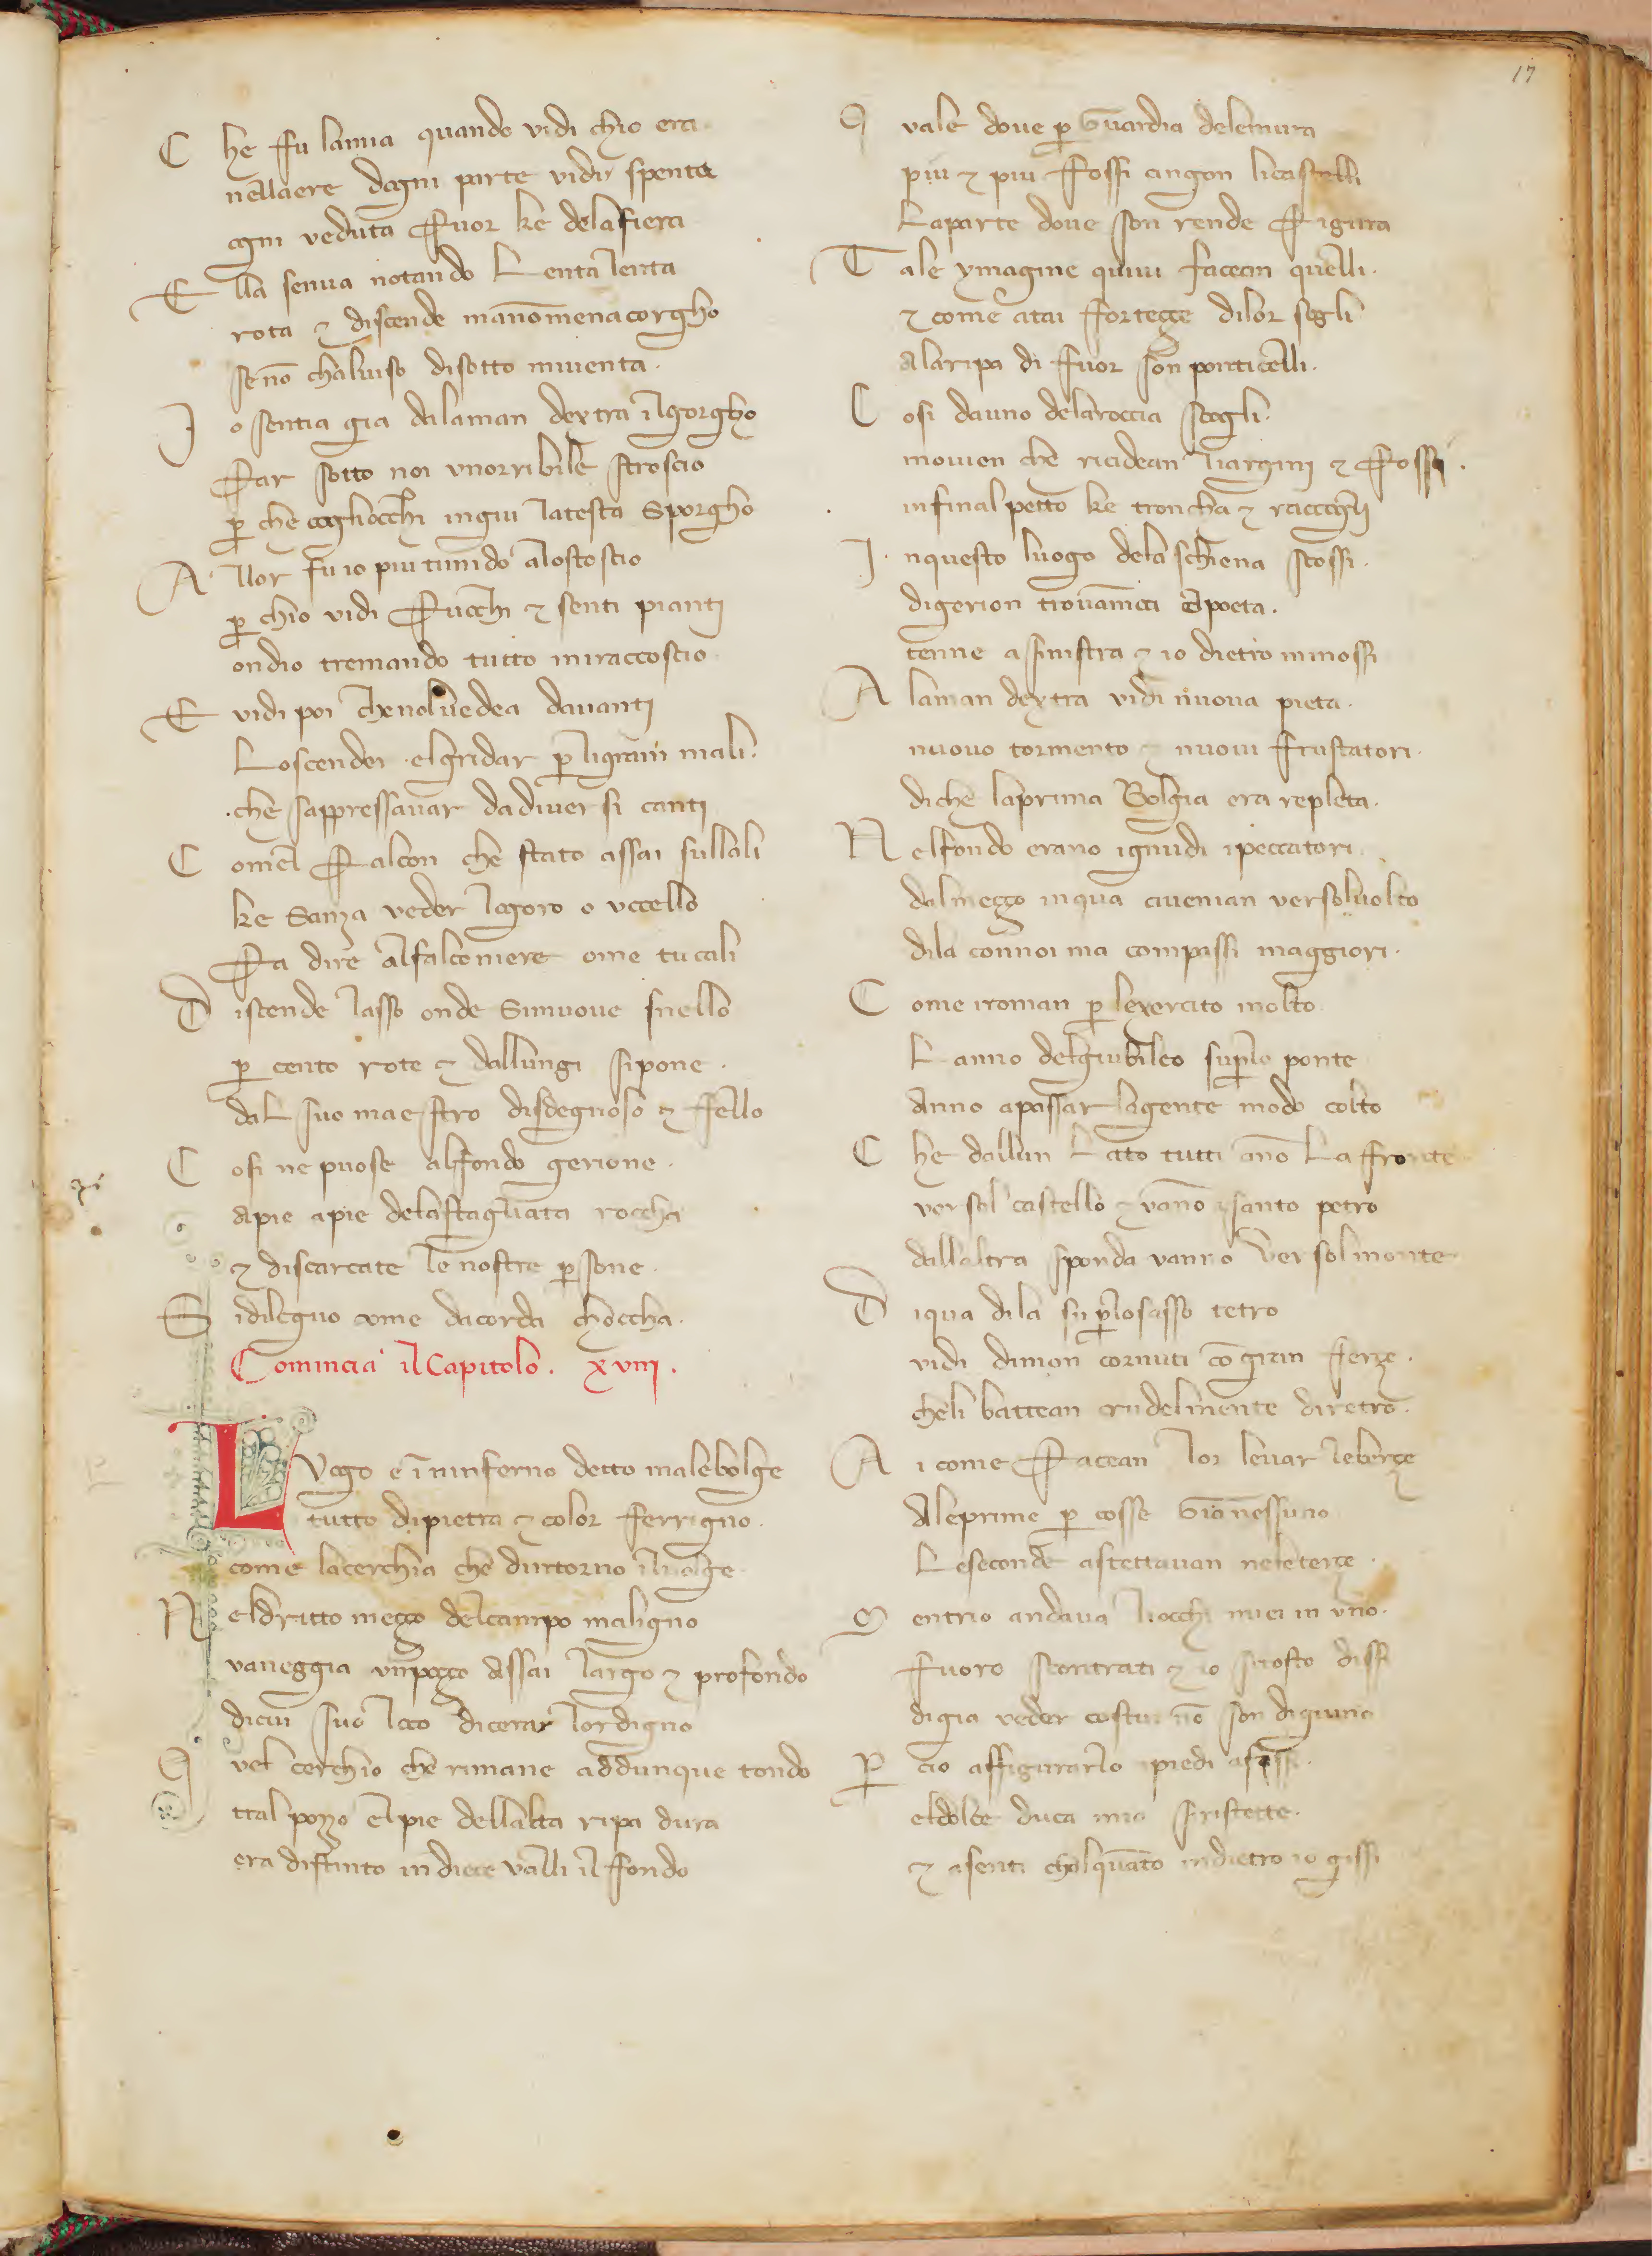 17
C he ffu lamia quando vidi chio era
nellaere dogni parte vidi spenta
ogni veduta Fuor ke dela fiera
E lla senua notando Lenta lenta
rota & discende manōmenacorgho
se nō chalviso disotto miventa.
J o sentia gia dalaman dextra ilgorgho
Far sotto noi vnorribile stroscio
p̲ che cogliocchi ingiu latesta Sporgho
A llor fu io piu timido alostoscio
p̲ chio vidi Fucchi & senti pianti
ondio tremando tutto miraccoscio
E vidi poi chenolvedea davanti
Loscender elgridar p̲ ligrāni mali.
che sappressavar dadiversi canti
C omel Falcon che stato assai sullali
ke Sanza veder logoro o vccello
Fa dire alfalconiere ome tu cali
D iscende lasso onde Simuove snello
p̲ cento rote & dallungi sipone.
dal suo maestro disdegnoso & ffello
C osi ne puose alfondo gerione.
apie apie delastagliata roccha
& discarcate le nostre p̲sone.
S idileguo come dacorda choccha.
Comincia il Capitolo. xviii.
L Vogo e ī ninferno detto malebolge
tutto dipietra & color fferrigno.
come lacerchia che dintorno ilvolge.
N eldritto meçço delcampo maligno
vaneggia vnpoçço assai largo & profondo
dicui suo loco dicerar lordigno
Q vel cerchio che rimane addunque tondo
tral pozzo elpie dellalta ripa dura
era distinto in diece valli il ffondo
Q vale dove p̲ Guardia delemura
piu & piu Fossi cingon licastelli
Laparte dove son rende Figura
T ale ymagine quivi facean quelli.
& come atai ffortecçe dilor segli
alaripa di ffuor son ponticelli.
C osi dauno delaroccia scogli.
movien che ricidean liargini & Fossi.
infinal poçço ke troncha & raccogli
J nquesto luogo dela schiena scossi.
digerion trovāmoci elpoeta.
tenne asinistra & io dietro mimossi
A laman dextra vidi nuova pieta.
nuovo tormento & nuovi ffrustatori.
diche laprima Bolgia era repleta.
N elfondo erano ignudi ipeccatori
dalmeçço inqua civenian versolvolto
dila connoi ma compassi maggiori.
C ome iroman p̲ lexercito molto
L anno delgiubileo sup̲lo ponte
anno apassar lagente modo colto
C he dallun Lato tutti āno La ffronte
versol castello & vāno asanto petro
dallaltra sponda vanno versolmonte
D iqua dila su p̲losasso tetro
vidi dimon cornuti cō gran fferçe.
cheli battean crudelmente diretro.
A i come Facean lor levar leberçe
aleprime p̲ cosse Gia nessuno
Leseconde aspettavan neleterçe.
M entrio andava liocchi miei in vno.
ffuoro scontrati & io sitosto dissi
digia veder costui nō son digiuno
P̲ cio affigurarlo ipiedi afissi.
eldolce duca mio siristette.
& asenti chalquāto indietro io gissi